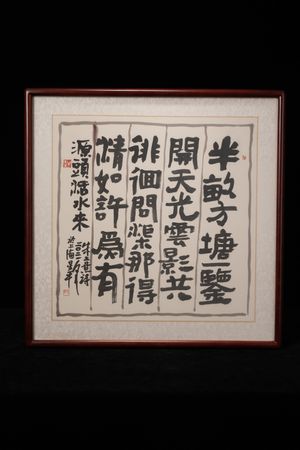 半畝方塘一鑒
開天光雲影共
徘徊問渠那得
清如許為有
源頭活水來
朱熹詩